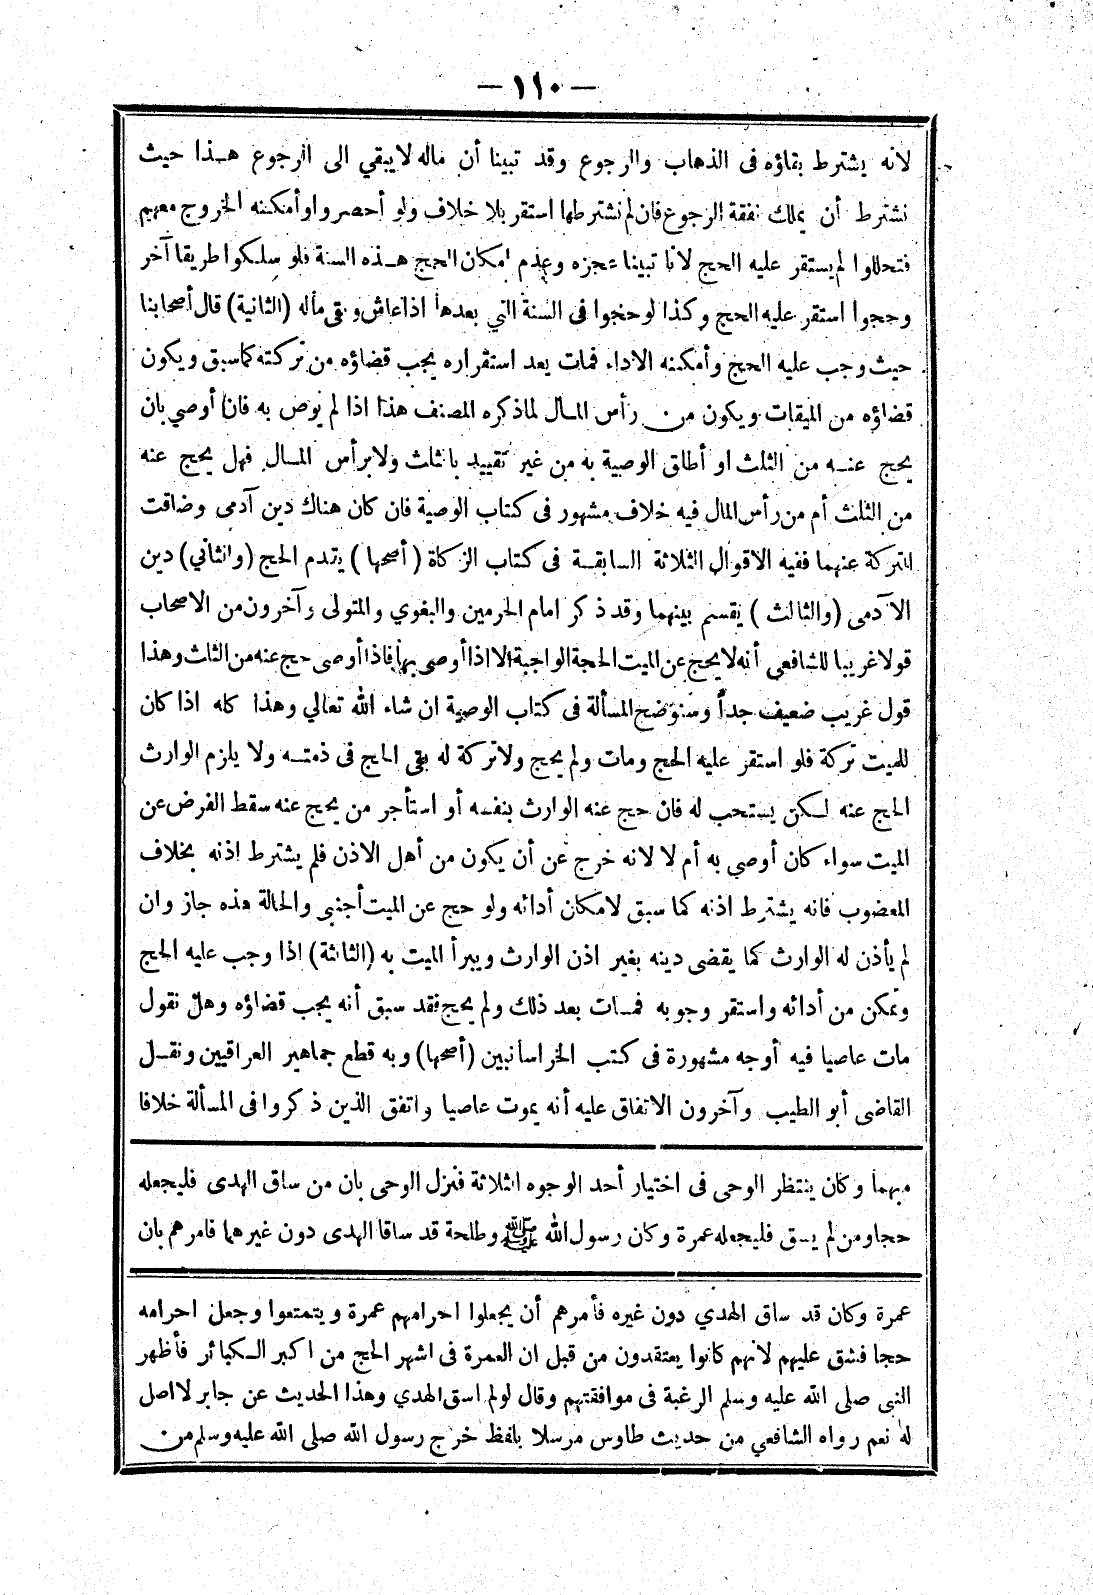 — ١١٠ —
لانه يشترط بقاؤه فى الذهاب والرجوع وقد تبينا أن ماله لا يبقي الى الرجوع هـذا حيث
نشترط أن يملك نفقة الرجوع فان لم نشترطها استقر بلا خلاف ولو أحصروا وأمكنه الخروج معهم
فتحللوا لم يستقر عليه الحج لانا تبينا عجزه وعدم امكان الحج هـذه السنة فلو سلكوا طريقا آخر
وحجوا استقر عليه الحج وكذا لو حجوا فى السنة التي بعدها اذا عاش وبقى ماله (الثانية) قال أصحابنا
حيث وجب عليه الحج وأمكنه الاداء فمات بعد استقراره يجب قضاؤه من تركته كما سبق ويكون
قضاؤه من الميقات ويكون من رأس المـال لما ذكره المصنف هذا اذا لم يوص به فان أوصي بان
يحج عنـه من الثلث او أطلق الوصية به من غير تقييد بالثلث ولا برأس المـال فهل يحج عنه
من الثلث أم من رأس المال فيه خلاف مشهور فى كتاب الوصية فان كان هناك دين آدمى وضاقت
التركة عنهما ففيه الاقوال الثلاثة السابقـة فى كتاب الزكاة (أصحها) يقدم الحج (والثاني) دين
الآدمى (والثالث) يقسم بينهما وقد ذكر امام الحرمين والبغوي والمتولى وآخرون من الاصحاب
قولا غريبا للشافعي أنه لا يحج عن الميت الحجة الواجبة الا اذا أوصى بها فاذا أوصى حج عنه من الثلث وهذا
قول غريب ضعيف جداً وسنوضح المسألة فى كتاب الوصية ان شاء الله تعالي وهذا كله اذا كان
للميت تركة فلو استقر عليه الحج ومات ولم يحج ولا تركة له بقى الحج فى ذمتـه ولا يلزم الوارث
الحج عنه لـكن يستحب له فان حج عنه الوارث بنفسه أو استأجر من يحج عنه سقط الفرض عن
الميت سواء كان أوصي به أم لا لانه خرج عن أن يكون من أهل الاذن فلم يشترط اذنه بخلاف
المعضوب فانه يشترط اذنه كما سبق لامكان أدائه ولو حج عن الميت أجنبى والحالة هذه جاز وان
لم يأذن له الوارث كما يقضى دينه بغير اذن الوارث ويبرأ الميت به (الثالثة) اذا وجب عليه الحج
وتمكن من أدائه واستقر وجوبه فمـات بعد ذلك ولم يحج فقد سبق أنه يجب قضاؤه وهل نقول
مات عاصيا فيه أوجه مشهورة فى كتب الخراسانيين (أصحها) وبه قطع جماهير العراقيين ونقـل
القاضى أبو الطيب وآخرون الاتفاق عليه أنه يموت عاصيا واتفق الذين ذكروا فى المسألة خلافا
مبهما وكان ينتظر الوحى فى اختيار أحد الوجوه الثلاثة فنزل الوحى بان من ساق الهدى فليجعله
حجا ومن لم يسق فليجعله عمرة وكان رسول الله ﷺ وطلحة قد ساقا الهدى دون غيرهما فامرهم بان
عمرة وكان قد ساق الهدي دون غيره فأمرهم أن يجعلوا احرامهم عمرة ويتمتعوا وجعل احرامه
حجا فشق عليهم لانهم كانوا يعتقدون من قبل ان العمرة فى اشهر الحج من اكبر الـكبائر فأظهر
النبى صلى الله عليه وسلم الرغبة فى موافقتهم وقال لو لم اسق الهدي وهذا الحديث عن جابر لا اصل
له نعم رواه الشافعي من حديث طاوس مرسلا بلفظ خرج رسول الله صلى الله عليه وسلم من